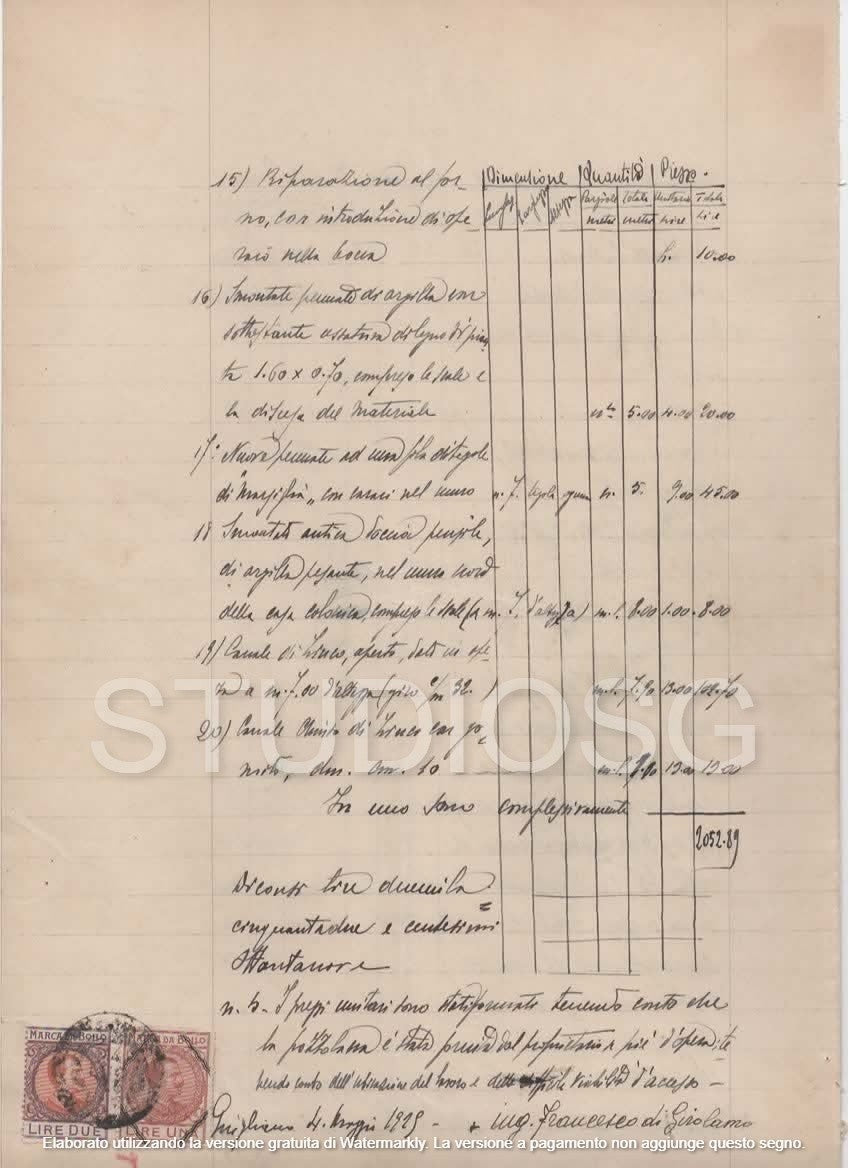 Dimensione Quantità Prezzo.
15) Riparazione al for-
Parziale Totale Unitario Totale
no, con introduzione di ope-
metri metri Lire Lire
raio nella bocca L. 10.00
16) Smontate pennate di argilla con
sottostante ossatura di legno di
1.60 x 0.70, compreso le scale e
la discesa del Materiale 5.00 4.00 20.00
17: Nuova pennate ad una fila di tegole
di "Marsiglia" con nel muro m. 7. 5. 9.00 45.00
18 Smontato antica doccia pensile,
di argilla pesante, nel muro nord
della casa colonica, compreso le scale (a m. 7. d'altezza) m. l. 8.00 1.00 8.00
19) Canale di zinco, aperto, dato in ope-
ra a m. 7.00 d'altezza (giro c/m 32.) m. l. 7.90 13.00 102.70
20) Canale chiuso di zinco con go-
mito, dm. cm. 10 m. l. 13.00 13.00
In uno sono complessivamente
2052.89
Diconsi lire duemila=
cinquantadue e centesimi
Ottantanove
n. b- I prezzi unitari sono stati formati tenendo conto che
la pozzolana è stata dal proprietario a piè d'opera, te-
nendo conto dell' del lavoro e delle d'accesso -
MARCA DA BOLLO MARCA DA BOLLO
LIRE DUE LIRE UNA
Giugliano 4 Maggio 1925 - ing. Francesco di Girolamo
STUDIOSG
Elaborato utilizzando la versione gratuita di Watermarkly. La versione a pagamento non aggiunge questo segno.